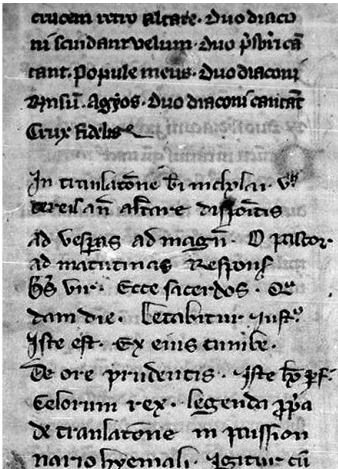 crucem retro altare. Duo diaco
ni scindant velum. Duo p̄sbri cā
tant. Popule meus. Duo diaconi
Agyos. Duo diaconi cantāt
Crux fidelis
In translatōne bī nicholai. vᵒ
altare
ad vespas ad magn̄. O pastor.
ad matutinas Respons
vir. Ecce sacerdos.
dam die. Letabitur iustᵒ
Iste est. Ex eius tumbe.
De ore prudentis. Iste
Celorum rex. legenda p̄pa
de translatōne in passion
nario hyemali. Igitur cū